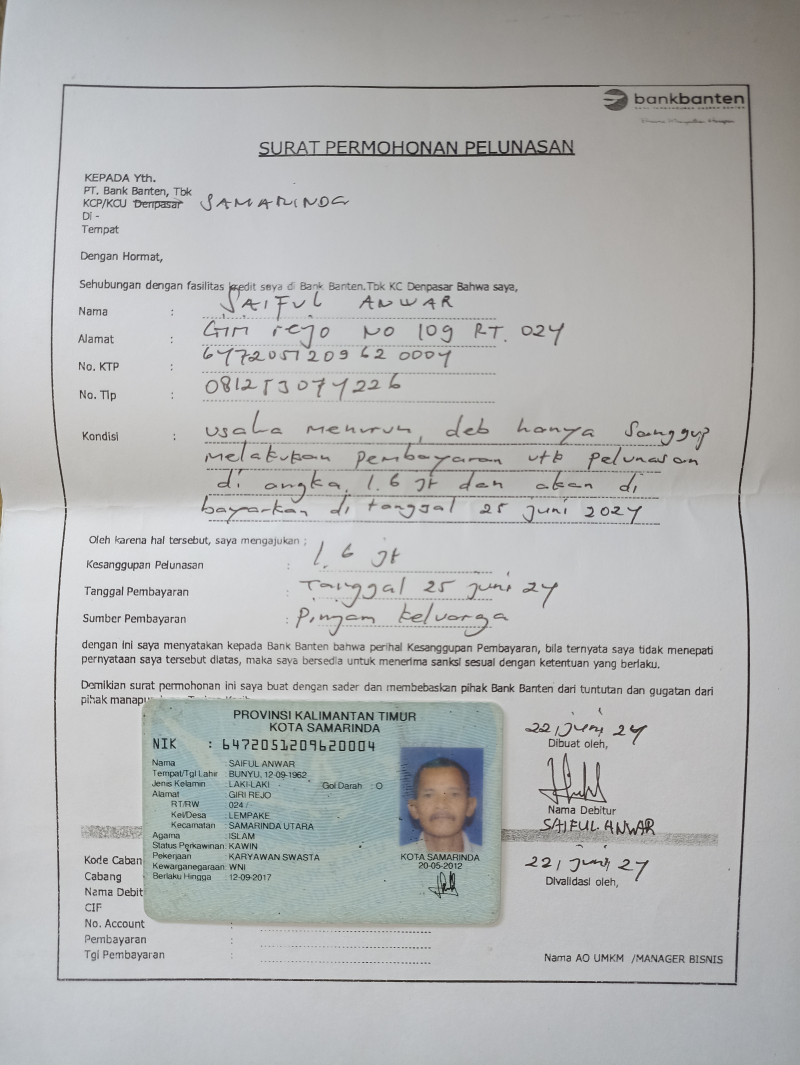 bankbanten
SURAT PERMOHONAN PELUNASAN
KEPADA Yth.
PT. Bank Banten, Tbk
KCP/KCU Denpasar SAMARINDA
Di -
Tempat
Dengan Hormat,
Sehubungan dengan fasilitas kredit saya di Bank Banten.Tbk KC Denpasar Bahwa saya,
Nama : SAIFUL ANWAR
Alamat : Giri rejo NO 109 RT. 024
No. KTP : 6472051209620004
No. Tlp : 081253074226
Kondisi : usaha menurun, deb hanya sanggup
melakukan pembayaran utk pelunasan
di angka 1.6 jt dan akan di
bayarkan di tanggal 25 juni 2024
Oleh karena hal tersebut, saya mengajukan ;
Kesanggupan Pelunasan : 1.6 jt
Tanggal Pembayaran : Tanggal 25 juni 24
Sumber Pembayaran : Pinjam keluarga
dengan ini saya menyatakan kepada Bank Banten bahwa perihal Kesanggupan Pembayaran, bila ternyata saya tidak menepati
pernyataan saya tersebut diatas, maka saya bersedia untuk menerima sanksi sesuai dengan ketentuan yang berlaku.
Demikian surat permohonan ini saya buat dengan sadar dan membebaskan pihak Bank Banten dari tuntutan dan gugatan dari
pihak
PROVINSI KALIMANTAN TIMUR
KOTA SAMARINDA
NIK : 6472051209620004
Nama : SAIFUL ANWAR
Tempat/Tgl Lahir : BUNYU, 12-09-1962
Jenis Kelamin : LAKI-LAKI Gol Darah : O
Alamat : GIRI REJO
RT/RW : 024 /
Kel/Desa : LEMPAKE
Kecamatan : SAMARINDA UTARA
Agama : ISLAM
Status Perkawinan: KAWIN
Pekerjaan : KARYAWAN SWASTA
Kewarganegaraan: WNI
Berlaku Hingga : 12-09-2017
KOTA SAMARINDA
20-05-2012
22, juni 24
Dibuat oleh,
Nama Debitur
SAIFUL ANWAR
22, juni 24
Divalidasi oleh,
Kode Caban
Cabang
Nama Debit
CIF
No. Account :
Pembayaran :
Tgl Pembayaran :
Nama AO UMKM /MANAGER BISNIS